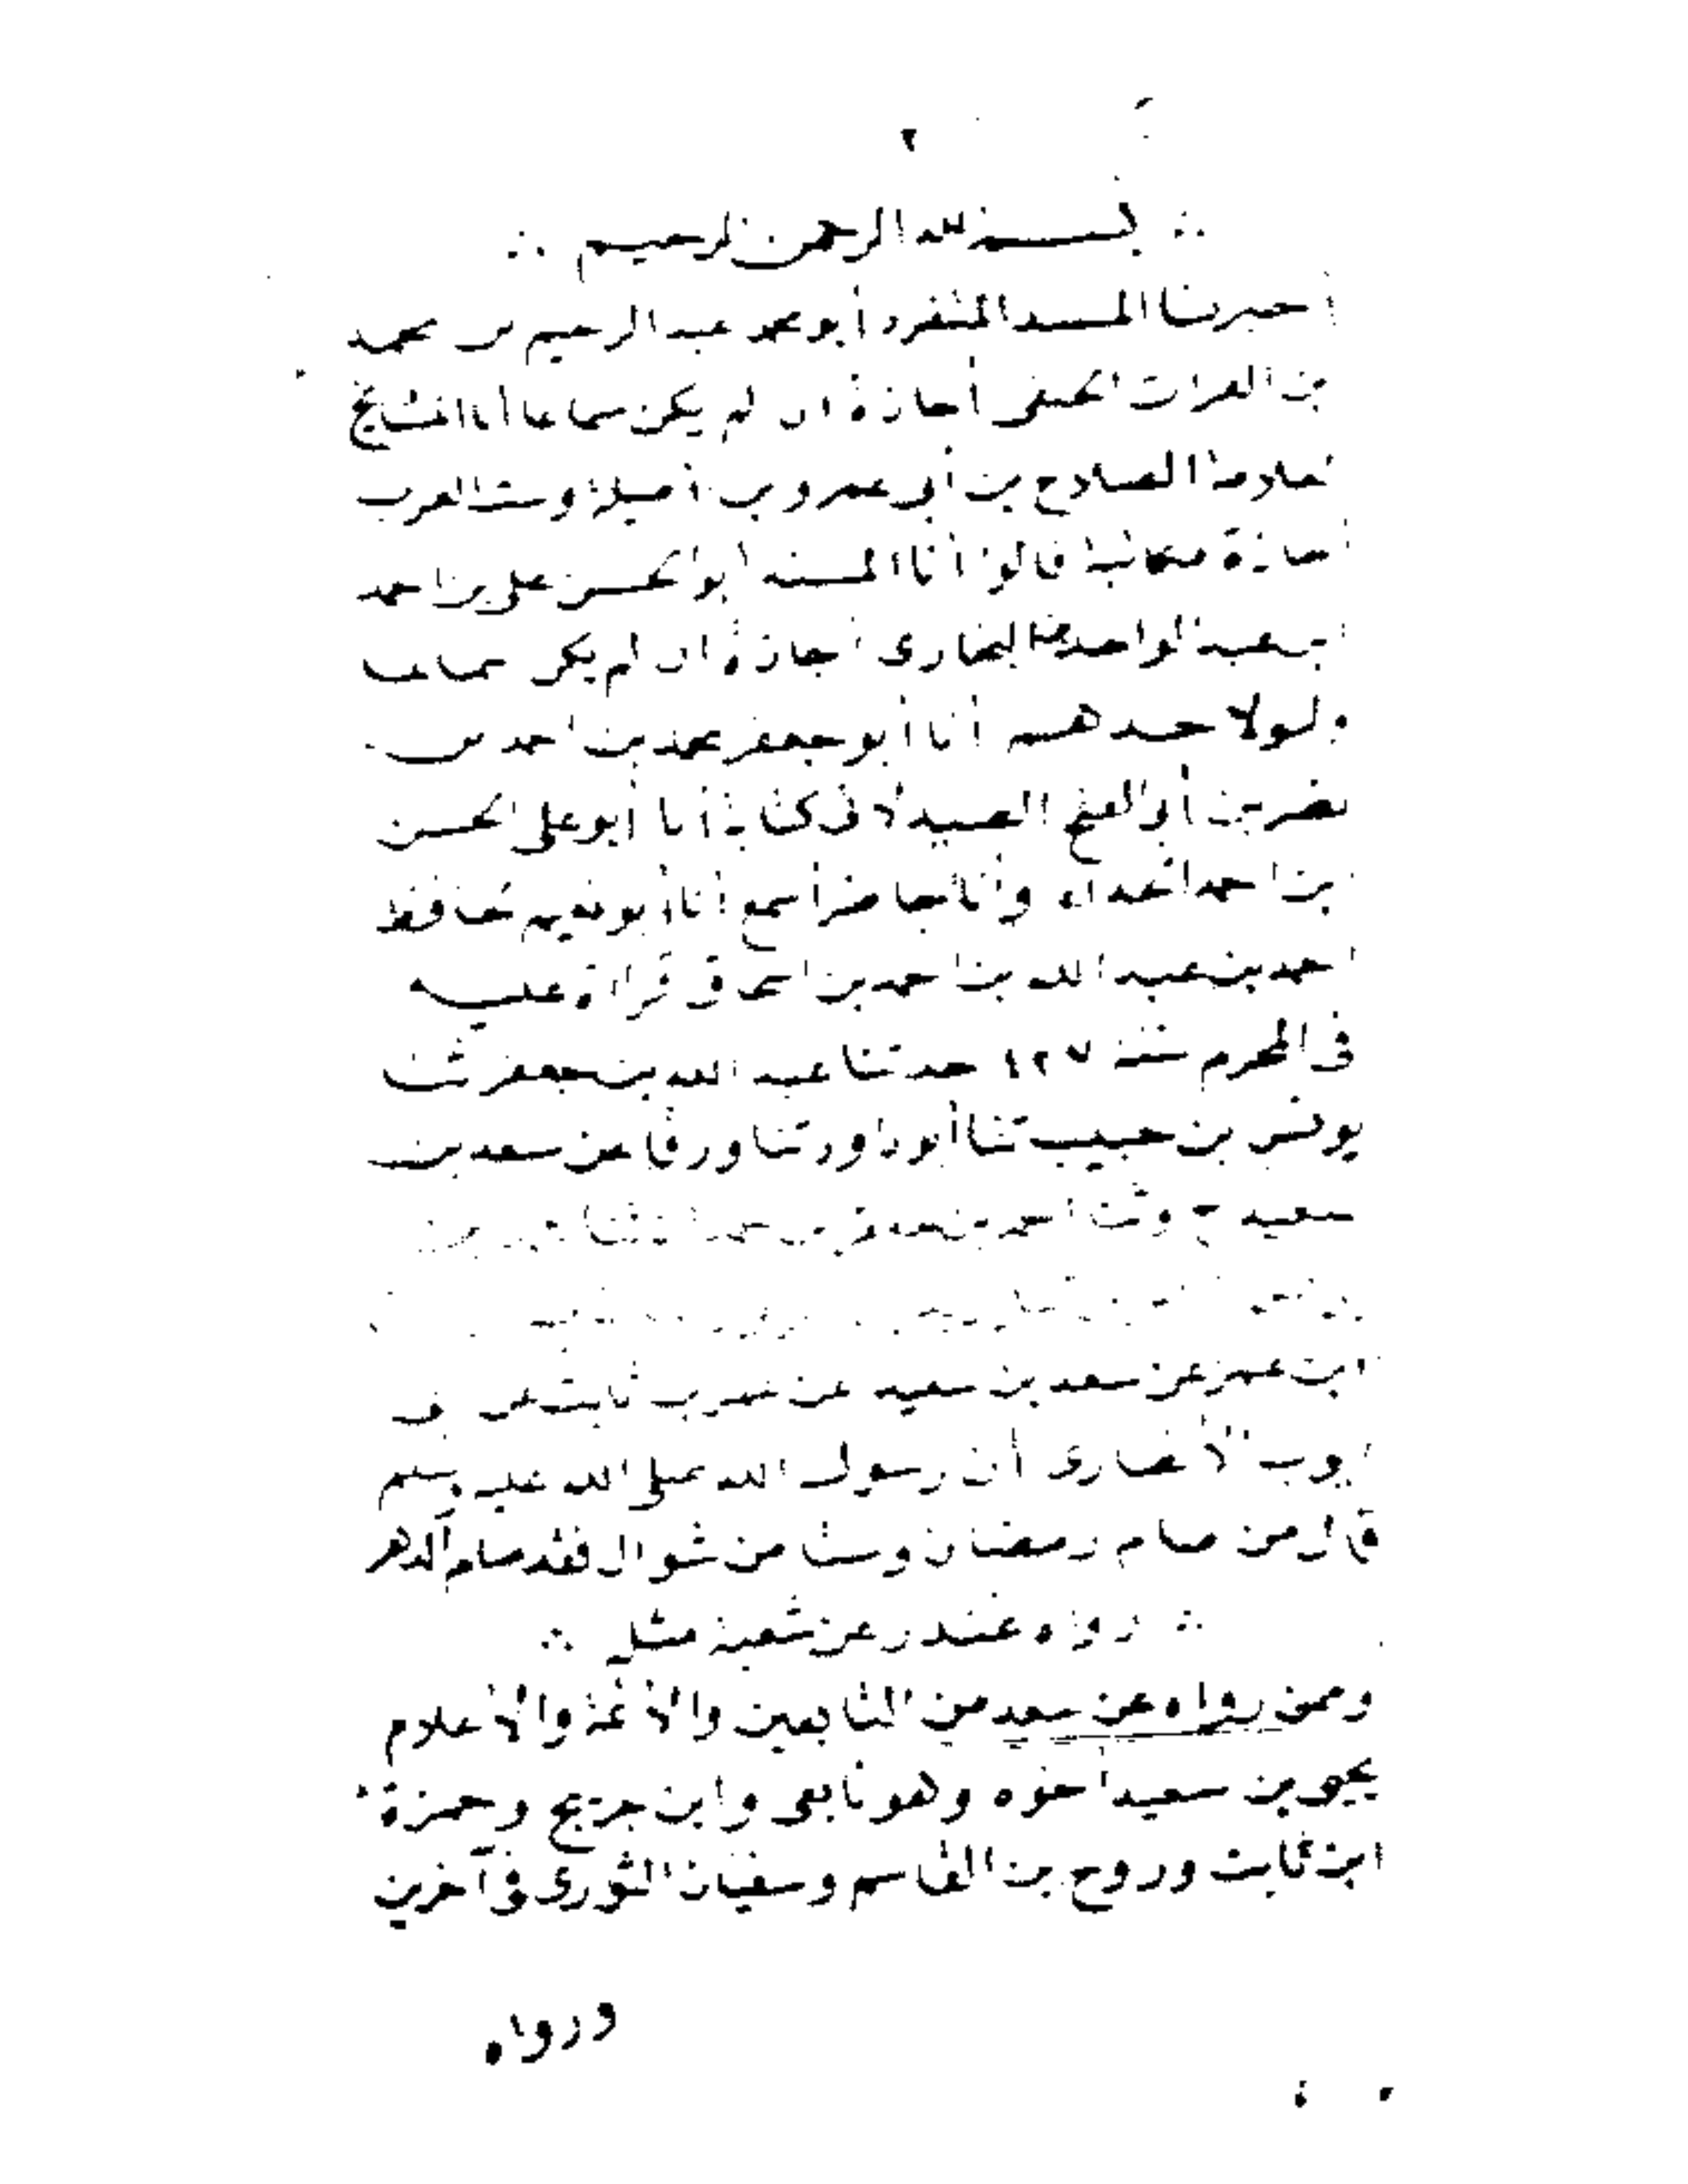 ٢
بسم الله الرحمن الرحيم
أخبرنا المسند المنفرد أبو محمد عبد الرحيم بن محمد
بن الفرات الحنفى أجازة ان لم يكن سماعا أنا المشايخ
الصلاح بن أبى عمر وبن أميلة وست العرب
اجازة مكاتبة قالوا أنا المسند ابو الحسن على بن احمد
بن عبد الواحد البخارى اجازة ان لم يكن سماعا
ولو لاحدهم أنا أبو جعفر محمد بن احمد بن
نصر بن أبى الفتح الصيدلانى كتابة أنا أبو على الحسن
بن احمد الحداد وأنا حاضر أسمع أنا أبو نعيم الحافظ
احمد بن عبد الله بن احمد بن اسحاق قراءة عليه
فى المحرم سنة ٤٢٧ حدثنا عبد الله بن جعفر ثنا
يونس بن حبيب ثنا أبو داود ثنا ورقا عن سعد بن
سعيد ح وثنا
ابن عمر عن سعد بن سعيد عن عمر بن ثابت عن أبى
ايوب الأنصارى أن رسول الله صلى الله عليه وسلم
قال من صام رمضان وستا من شوال فقد صام الدهر
رواه غندر عن شعبة مثله
وممن رواه عن سعد من التابعين والأئمة والأعلام
يحيى بن سعيد أخوه وهو تابعى وابن جريج وحمزة
ابن ثابت وروح بن القاسم وسفيان الثورى فى آخرين
ورواه